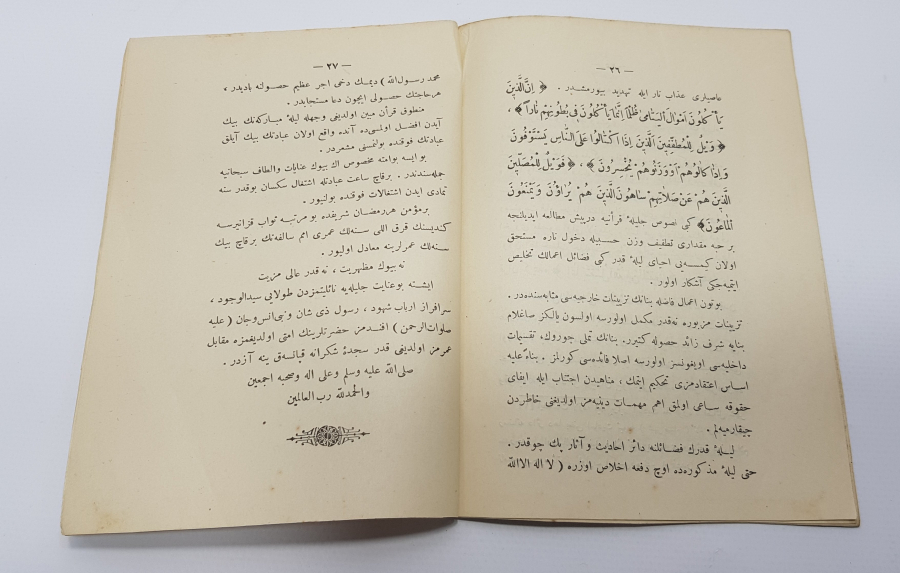 — ٢٦ —
عاصیلری عذاب نار ایله تهدید بیورمشدر . ﴿ اِنَّ الَّذِينَ
يَأْكُلُونَ اَمْوَالَ الْيَتَامٰى ظُلْمًا اِنَّمَا يَأْكُلُونَ فِى بُطُونِهِمْ نَارًا ﴾ ،
﴿ وَيْلٌ لِلْمُطَفِّفِينَ الَّذِينَ اِذَا اكْتَالُوا عَلَى النَّاسِ يَسْتَوْفُونَ
وَاِذَا كَالُوهُمْ اَوْ وَزَنُوهُمْ يُخْسِرُونَ ﴾ ، ﴿ فَوَيْلٌ لِلْمُصَلِّينَ
الَّذِينَ هُمْ عَنْ صَلَاتِهِمْ سَاهُونَ الَّذِينَ هُمْ يُرَاؤُنَ وَيَمْنَعُونَ
الْمَاعُونَ ﴾ كبی نصوص جلیلهٔ قرآنیه درپیش مطالعه ایدیلنجه
بر حبه مقداری تطفیف وزن حسبیله دخول ناره مستحق
اولان کیمسه‌یی احیای لیلهٔ قدر کبی فضائل اعمالك تخلیص
ایتمیه‌جکی آشکار اولور .
بوتون اعمال فاضله بنانك تزیینات خارجیه‌سی مثابه‌سنده‌در .
تزیینات مزبوره نه‌قدر مکمل اولورسه اولسون یالکز صاغلام
بنایه شرف زائد حصوله کتیرر. بنانك تملی چوروك، تقسیمات
داخلیه‌سی اویغونسز اولورسه اصلا فائده‌سی کورلمز . بناءً علیه
اساس اعتقادمزی تحکیم ایتمك ، مناهیدن اجتناب ایله ایفای
حقوقه ساعی اولمق اهم مهمات دینیه‌مز اولدیغنی خاطردن
چیقارمیه‌لم .
لیلهٔ قدرك فضائلنه دائر احادیث و آثار پك چوقدر .
حتی لیلهٔ مذکوره‌ده اوچ دفعه اخلاص اوزره ( لا اله الا الله
— ٢٧ —
محمد رسول‌الله ) دیمك دخی اجر عظیم حصولنه بادیدر ،
هر حاجتك حصولی ایچون دعا مستجابدر .
منطوق قرآن مبین اولدیغی وجهله لیلهٔ مبارکه‌نك بیك
آیدن افضل اولمسی‌ده آنده واقع اولان عبادتك بیك آیلق
عبادتك فوقنده بولنمسنی مشعردر .
بو ایسه بوامته مخصوص اك بیوك عنایات والطاف سبحانیه
جمله‌سندندر . برقاچ ساعت عبادتله اشتغال سکسان بوقدر سنه
تمادی ایدن اشتغالات فوقنده بولنیور .
برمؤمن هر رمضان شریفده بو مرتبه ثواب قزانیرسه
کندیسنك قرق اللی سنه‌لك عمری امم سالفه‌نك برقاچ بیك
سنه‌لك عمرلرینه معادل اولیور .
نه بیوك مظهریت ، نه‌قدر عالی مزیت
ایشته بوعنایت جلیله‌یه نائلیتمزدن طولایی سیدالوجود ،
سرافراز ارباب شهود ، رسول ذی شان ونبی‌انس‌وجان ( علیه
صلوات‌الرحمن ) افندمز حضرتلرینك امتی اولدیغمزه مقابل
عمرمز اولدیغی قدر سجدهٔ شکرانه قپانسه‌ق ینه آزدر .
صلی الله علیه وسلم وعلی اله وصحبه اجمعین
والحمدلله رب العالمین